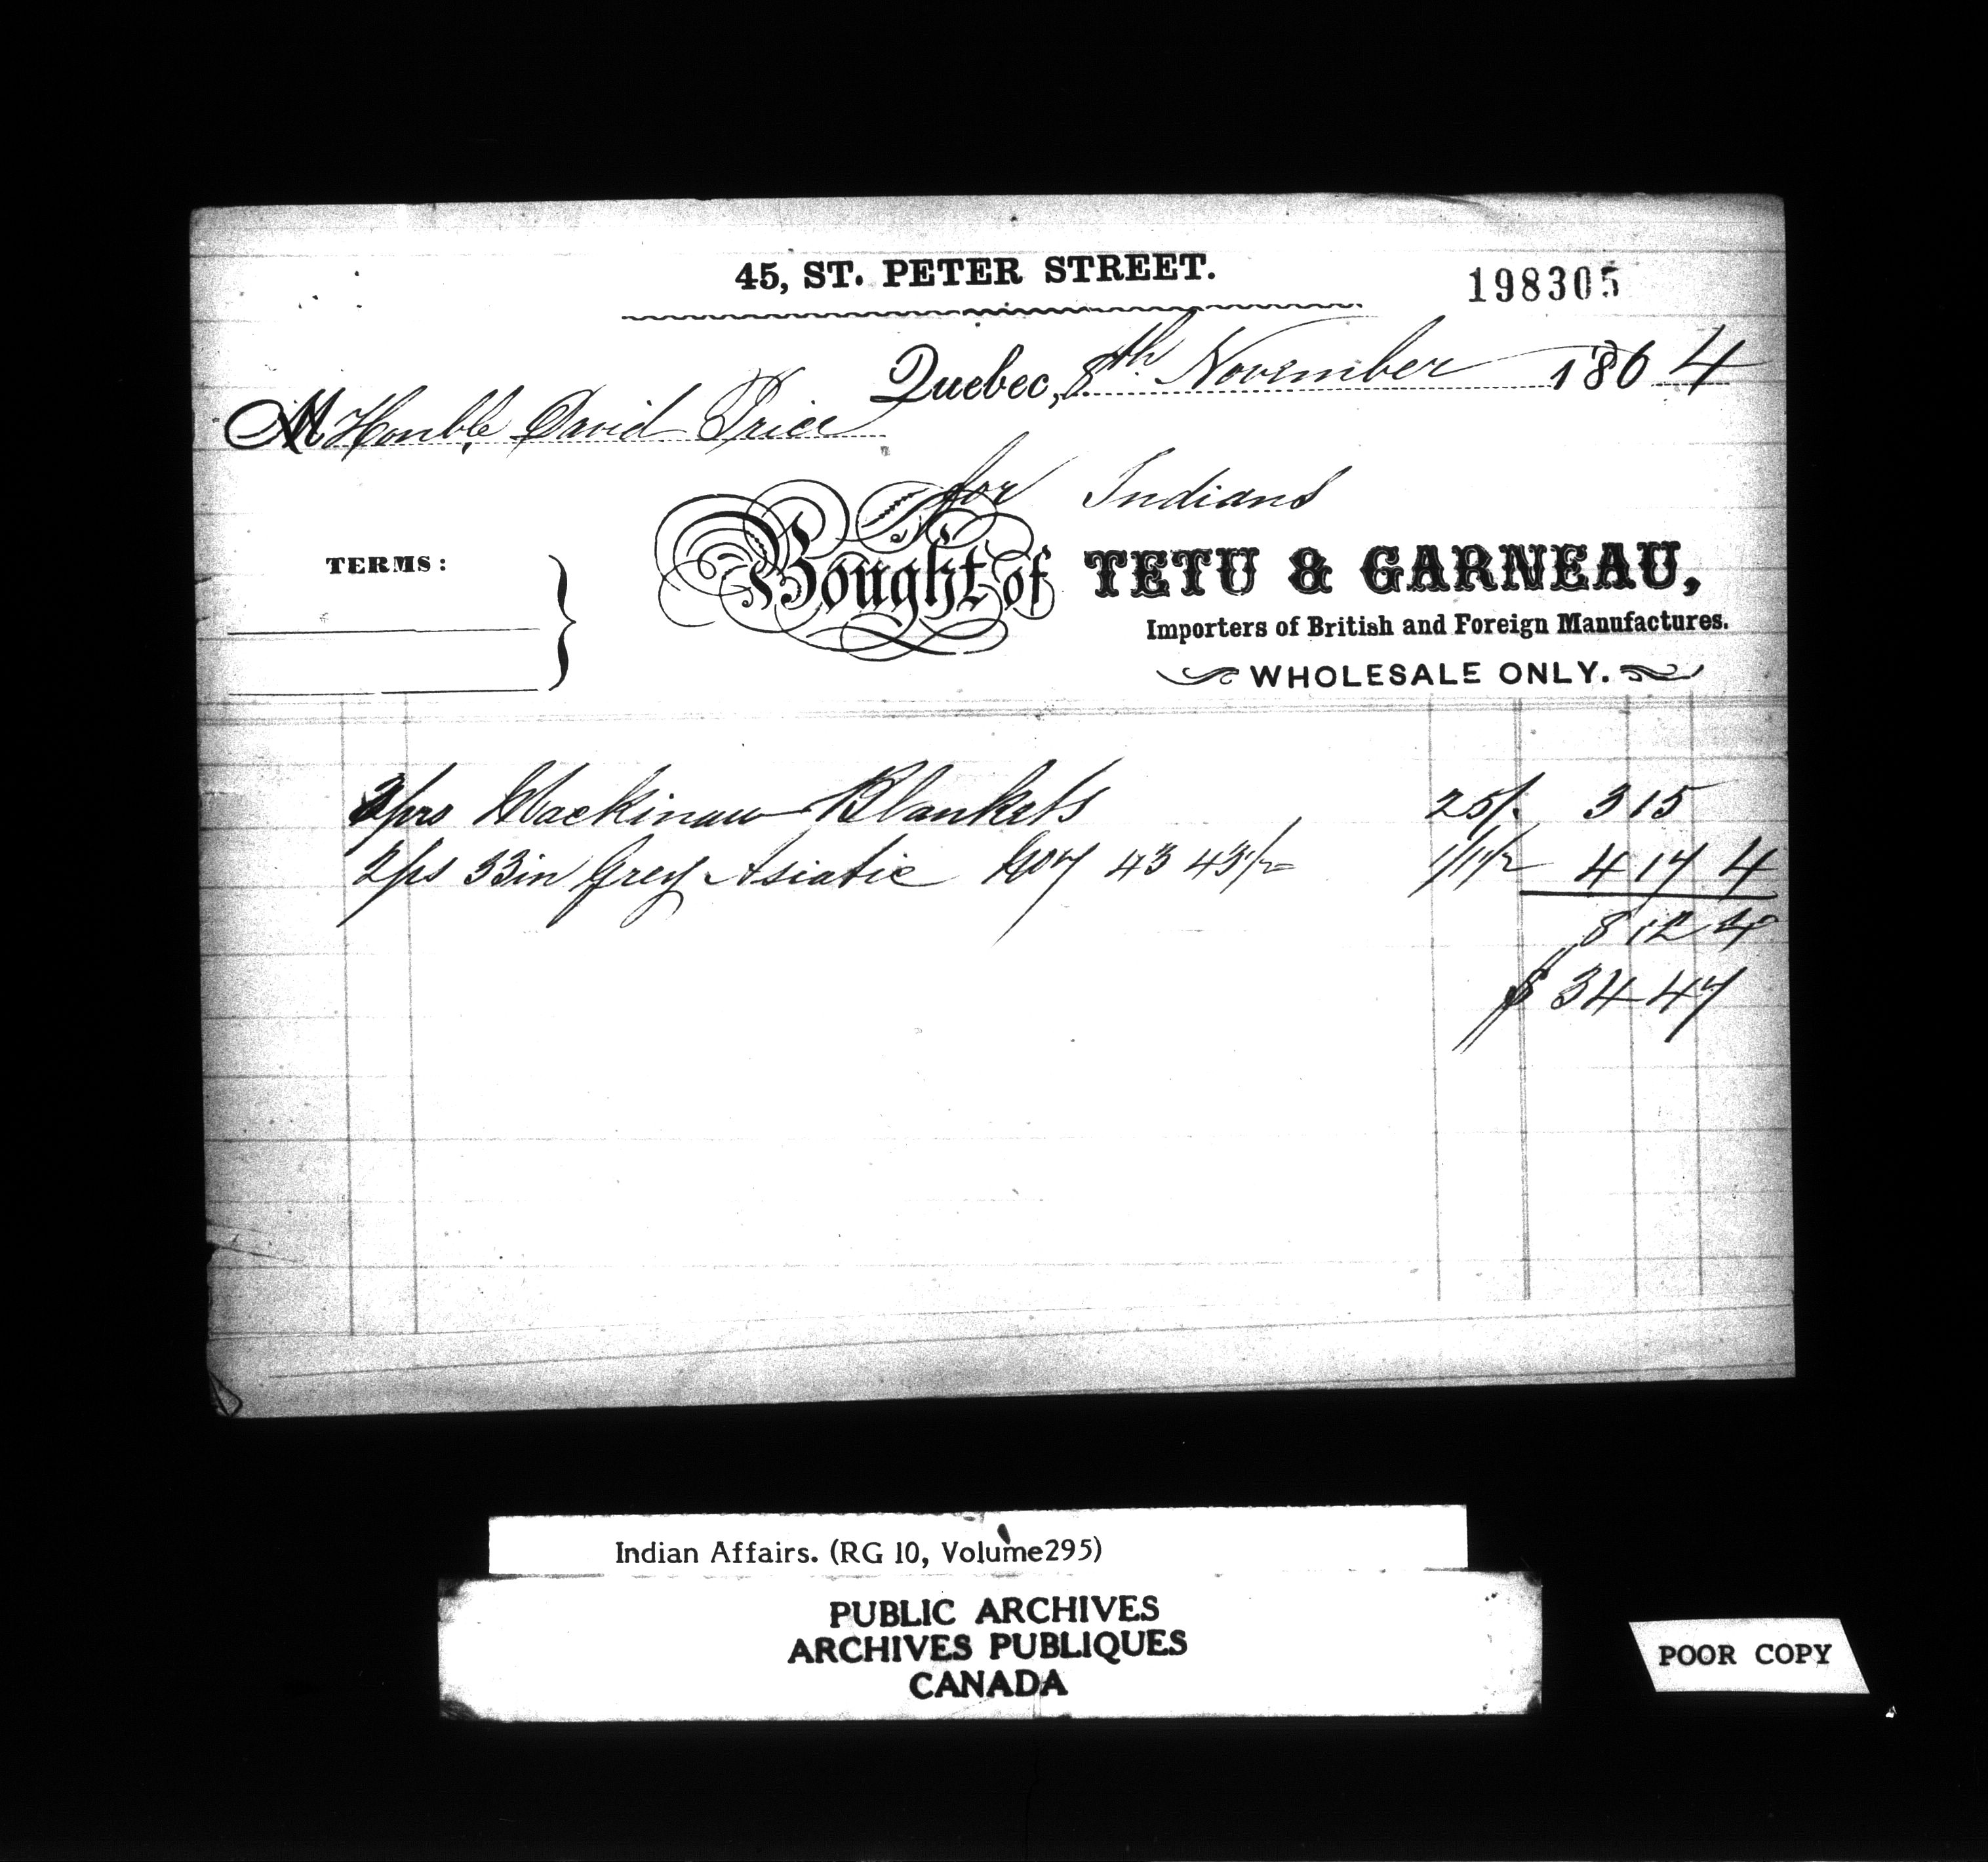 45, ST. PETER STREET.
198305
Quebec, 8th November 1864
M Honble David Price
for Indians
TERMS:
Bought of TETU & GARNEAU,
Importers of British and Foreign Manufactures.
WHOLESALE ONLY.
3 prs Mackinaw Blankets 25/. 3 15
2 ps 33 in Grey Asiatic 43 43 1/2 1/1 1/2 4 17 4
8 12 4
$ 34 47
Indian Affairs. (RG 10, Volume295)
PUBLIC ARCHIVES
ARCHIVES PUBLIQUES
CANADA
POOR COPY